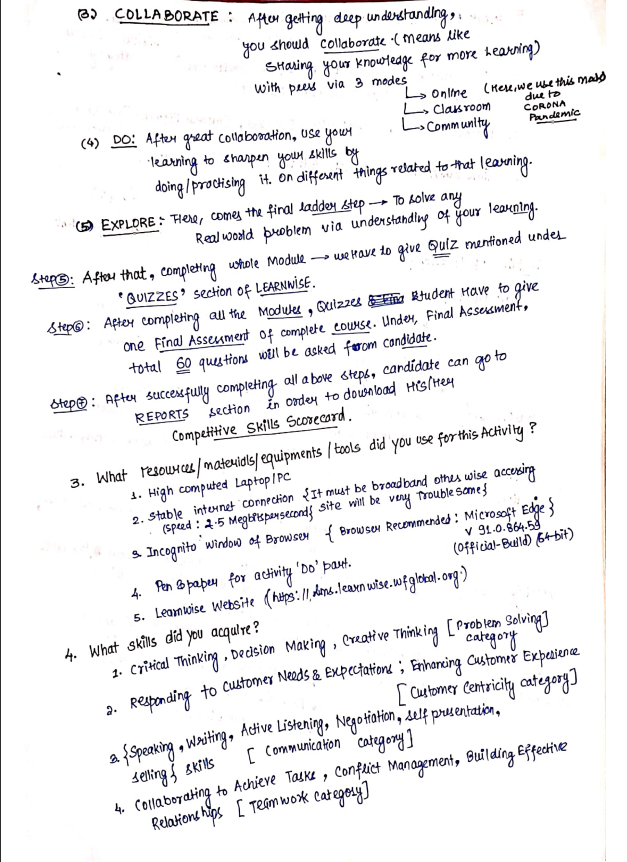 (3) COLLABORATE : After getting deep understanding,
you should collaborate (means like
sharing your knowledge for more learning)
with peers via 3 modes
→ Online (Here, we use this mode
→ Classroom due to
→ Community CORONA
Pandemic
(4) DO: After great collaboration, use your
learning to sharpen your skills by
doing/practising it. on different things related to that learning.
(5) EXPLORE: Here, comes the final ladder step → To solve any
Real world problem via understanding of your learning.
Step⑤: After that, completing whole Module → we Have to give QUIZ mentioned under
"QUIZZES" section of LEARNWISE.
Step⑥: After completing all the Modules, Quizzes Student Have to give
one Final Assessment of complete course. Under, Final Assessment,
total 60 questions will be asked from candidate.
Step⑦: After successfully completing all above steps, candidate can go to
REPORTS section in order to download His/Her
Competitive Skills Scorecard.
3. What resources/materials/equipments/tools did you use for this Activity?
1. High computed Laptop/PC
2. Stable internet connection {It must be broadband other wise accessing
(speed: 2.5 Megbitspersecond) site will be very Troublesome}
3. Incognito window of Browser { Browser Recommended: Microsoft Edge }
V 91.0.864.59
(Official-Build) (64-bit)
4. Pen & paper for activity 'Do' part.
5. Learnwise Website (https://lms.learnwise.wfglobal.org)
4. What skills did you acquire?
1. Critical Thinking, Decision Making, Creative Thinking [Problem Solving]
category
2. Responding to Customer Needs & Expectations; Enhancing Customer Experience
[Customer Centricity category]
3. {Speaking, Writing, Active Listening, Negotiation, self presentation,
selling} skills [Communication category]
4. Collaborating to Achieve Tasks, Conflict Management, Building Effective
Relationships [Teamwork category]